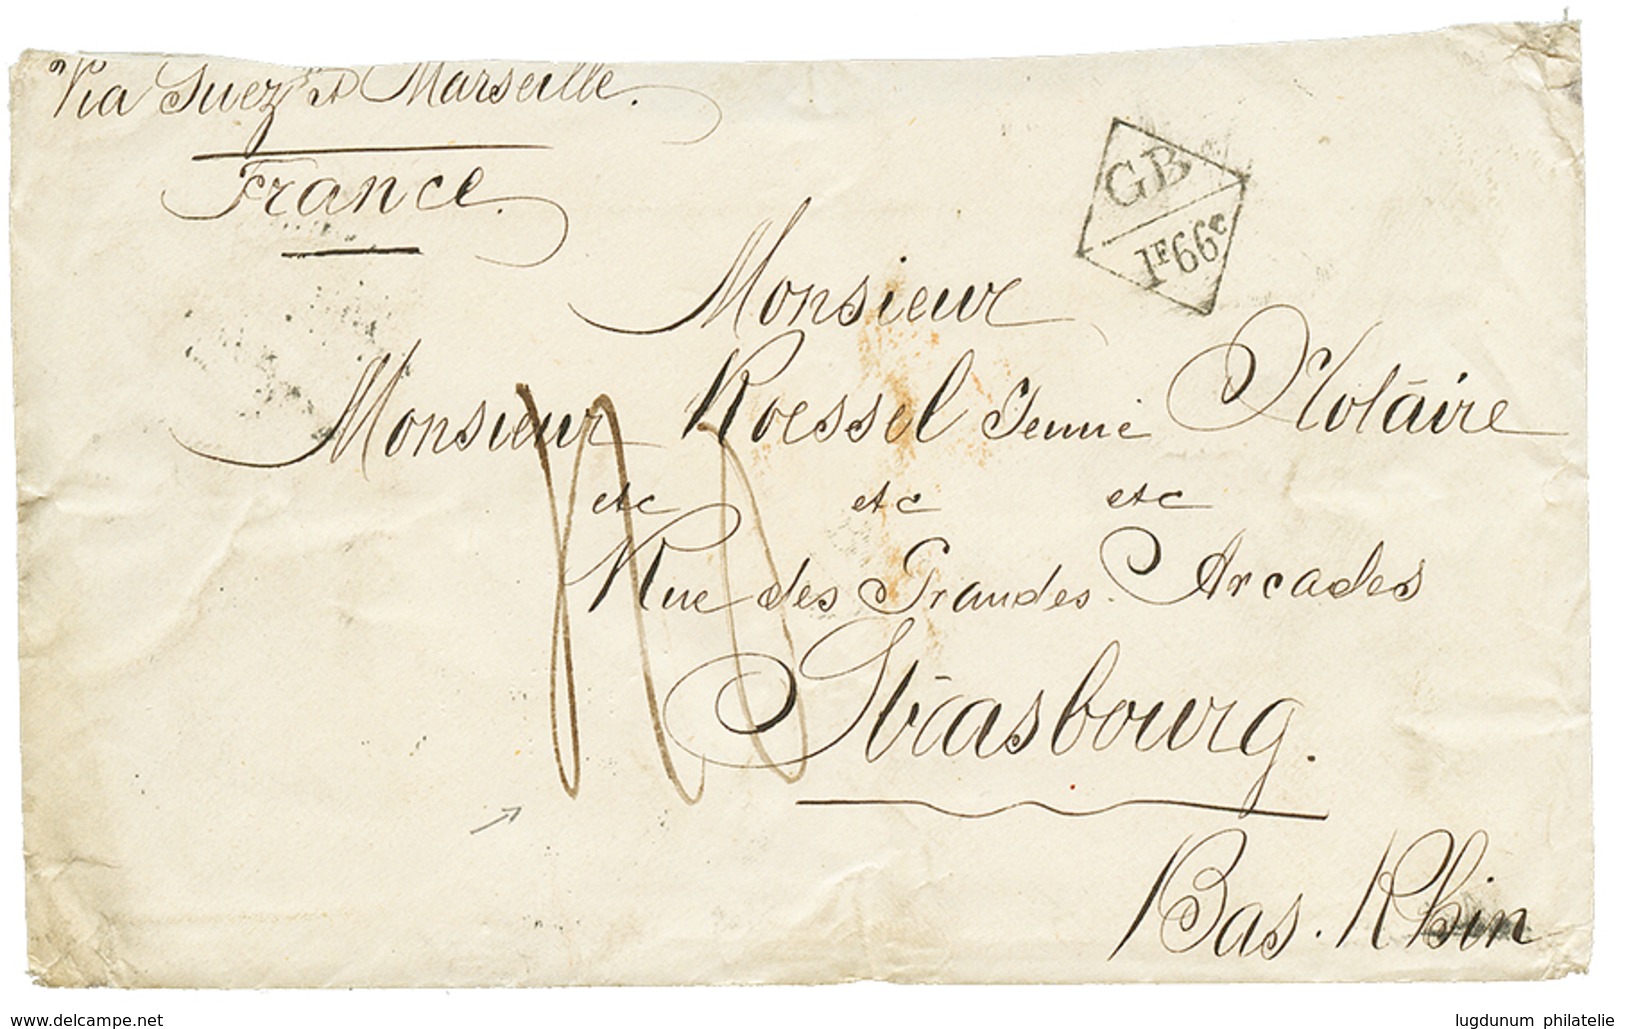 Via Suez et Marseille.
France.
GB
1F66c
Monsieur
Monsieur Roessel Jeune Notaire
etc etc etc
Rue des Grandes Arcades
Strasbourg.
Bas. Rhin
www.delcampe.net
lugdunum philatelie